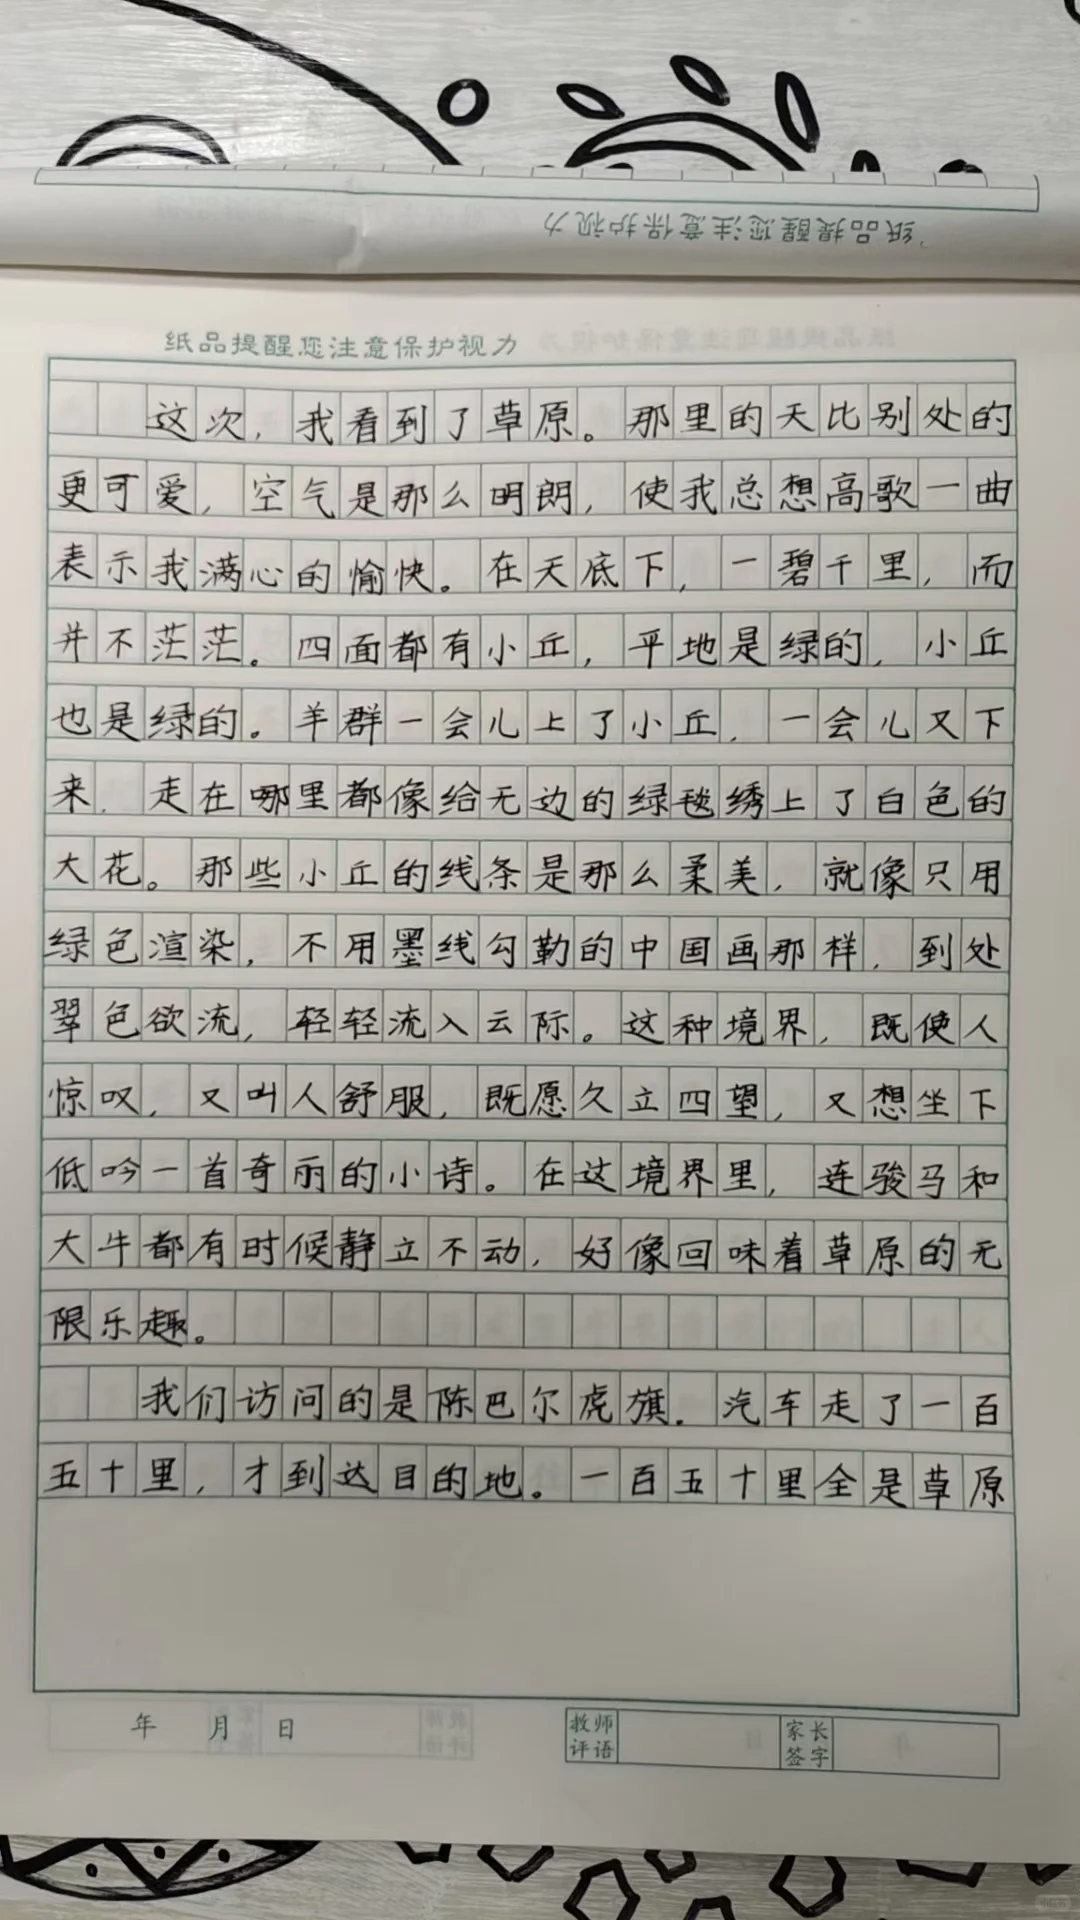 纸品提醒您注意保护视力
纸品提醒您注意保护视力
这次，我看到了草原。那里的天比别处的
更可爱，空气是那么明朗，使我总想高歌一曲
表示我满心的愉快。在天底下，一碧千里，而
并不茫茫。四面都有小丘，平地是绿的，小丘
也是绿的。羊群一会儿上了小丘，一会儿又下
来，走在哪里都像给无边的绿毯绣上了白色的
大花。那些小丘的线条是那么柔美，就像只用
绿色渲染，不用墨线勾勒的中国画那样，到处
翠色欲流，轻轻流入云际。这种境界，既使人
惊叹，又叫人舒服，既愿久立四望，又想坐下
低吟一首奇丽的小诗。在这境界里，连骏马和
大牛都有时候静立不动，好像回味着草原的无
限乐趣。
我们访问的是陈巴尔虎旗。汽车走了一百
五十里，才到达目的地。一百五十里全是草原
年 月 日 教师评语 家长签字